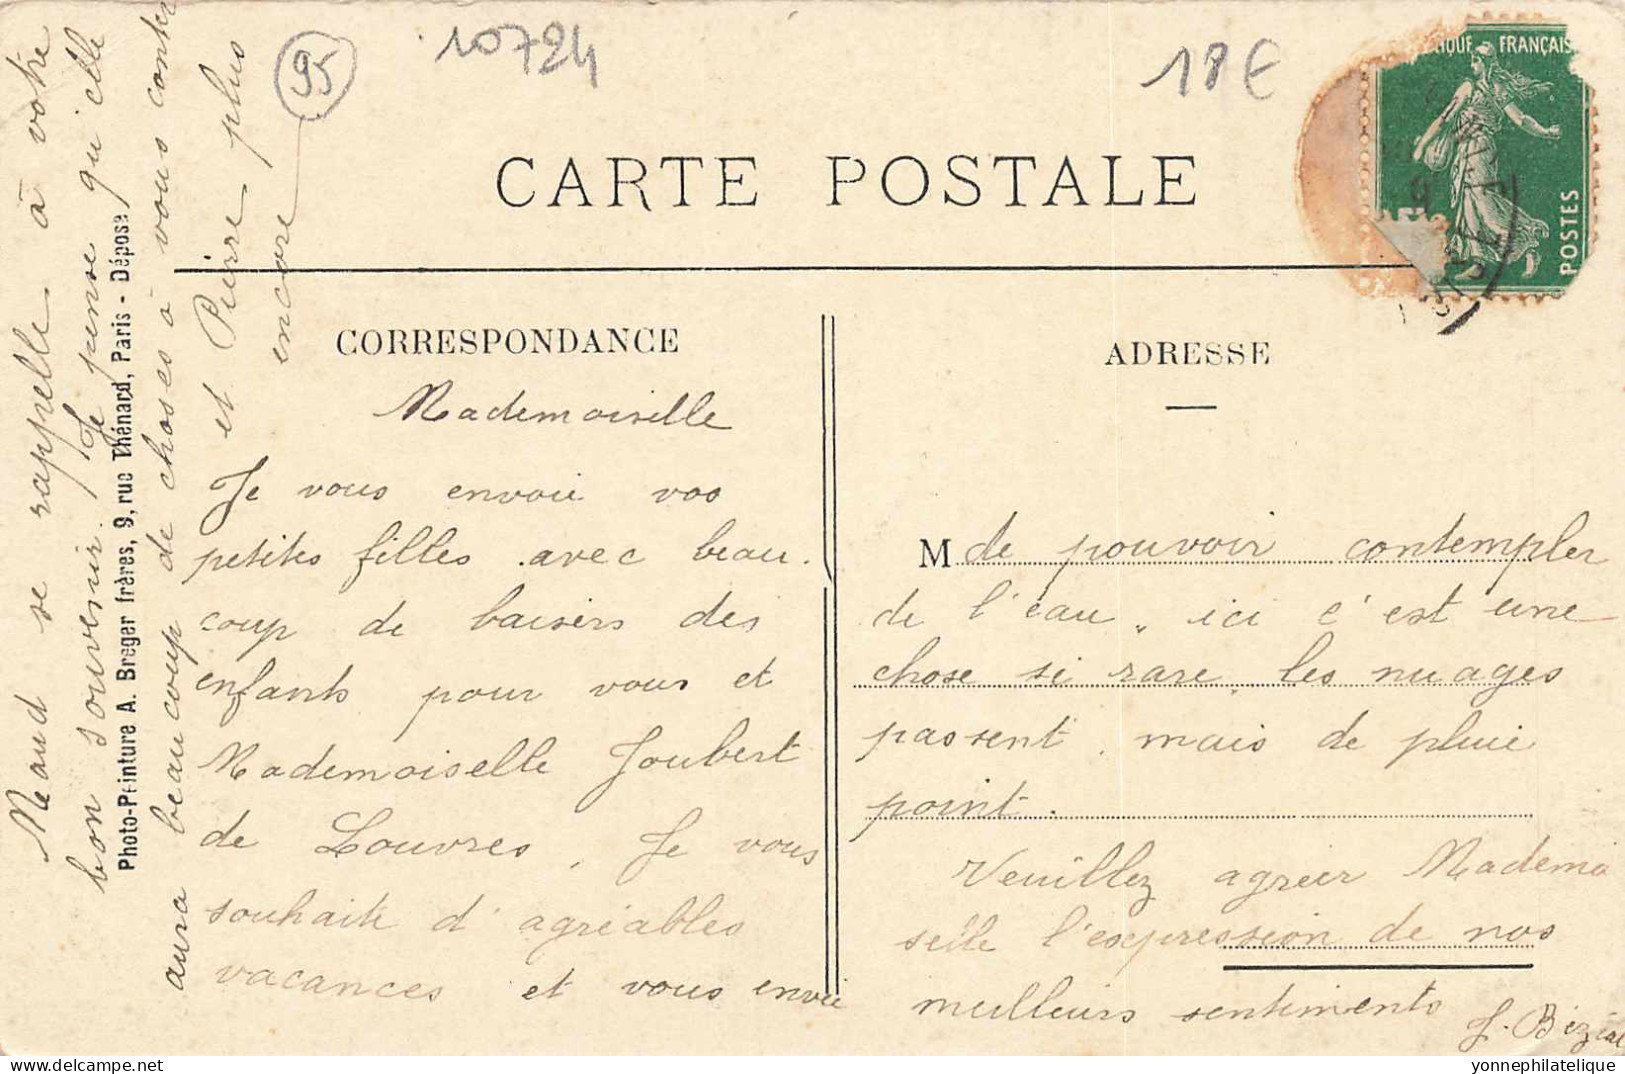 95
10724
18 €
CARTE POSTALE
QUE FRANÇAIS
POSTES
CORRESPONDANCE
ADRESSE
Mademoiselle
Je vous envoie vos
petites filles avec beau.
coup de baisers des
enfants pour vous et
Mademoiselle Joubert
de Louvres. Je vous
souhaite d'agréables
vacances et vous envie
M de pouvoir contempler
de l'eau, ici c'est une
chose si rare, les nuages
passent, mais de pluie
point.
Veuillez agréer Mademoi
selle l'expression de nos
meilleurs sentiments
J. Bizial
Maud se rappelle à votre
bon souvenir. Je pense qu'elle
aura beaucoup de choses à vous conter
et Pierre plus
encore
Photo-Peinture A. Breger frères, 9, rue Thénard, Paris - Déposé
yonnephilatelique